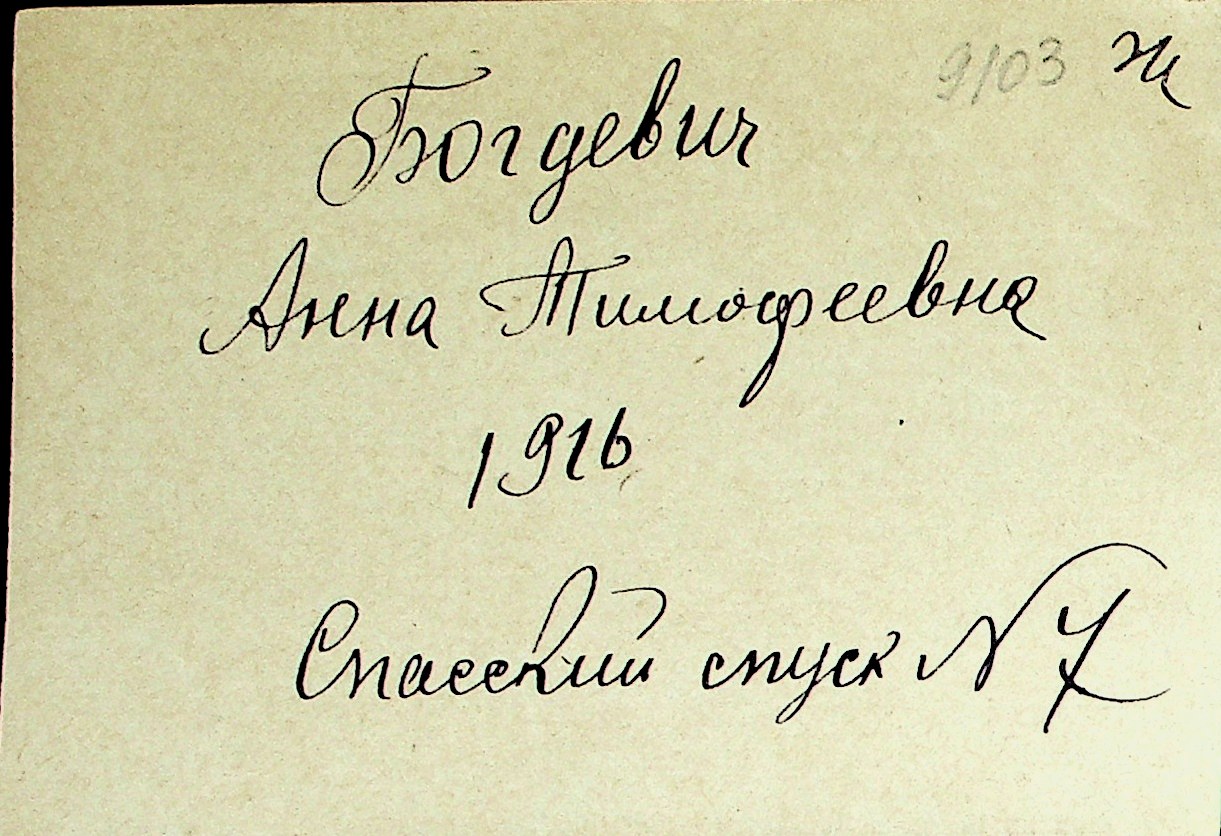 9103 ж
Богдевич
Анна Тимофеевна
1916
Спасский спуск N 7